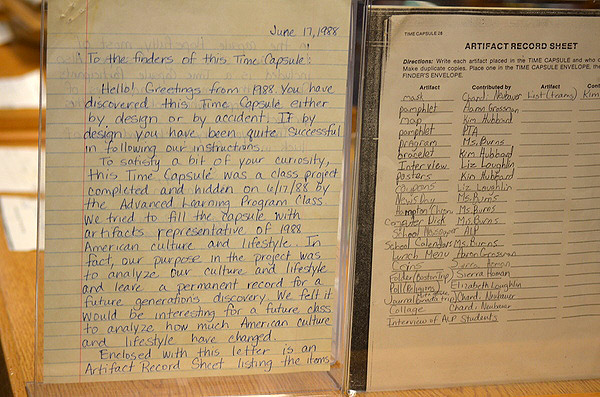 June 17, 1988
To the finders of this Time Capsule:
Hello! Greetings from 1988. You have
discovered this Time Capsule either
by design or by accident. If by
design you have been quite successful
in following our instructions.
To satisfy a bit of your curiosity,
this Time Capsule was a class project
completed and hidden on 6/17/88 by
the Advanced Learning Program Class.
We tried to fill the capsule with
artifacts representative of 1988
American culture and lifestyle. In
fact, our purpose in the project was
to analyze our culture and lifestyle
and leave a permanent record for a
future generations discovery. We felt it
would be interesting for a future class
to analyze how much American culture
and lifestyle have changed.
Enclosed with this letter is an
Artifact Record Sheet listing the items
TIME CAPSULE
ARTIFACT RECORD SHEET
Directions: Write each artifact placed in the TIME CAPSULE and who
Make duplicate copies. Place one in the TIME CAPSULE ENVELOPE, the
FINDER'S ENVELOPE.
Artifact Contributed by Artifact
mask Chard. Neubauer List (teams) Kim
pamphlet Aaron Grossman
map Kim Hubbard
pamphlet PTA
program Ms. Burns
bracelet Kim Hubbard
Interview Liz Loughlin
posters Kim Hubbard
coupons Liz Loughlin
Newsday Ms. Burns
Hampton Chron Ms. Burns
Computer Disk Ms. Burns
School Newspaper ALP
School Calendars Ms. Burns
Lunch Menu Aaron Grossman
Coins Sierra Homan
Folder (Boston trip) Sierra Homan
Poll (Religions) Elizabeth Loughlin
Journal (trip) Chard. Neubauer
Collage Chard. Neubauer
Interview of ALP Students